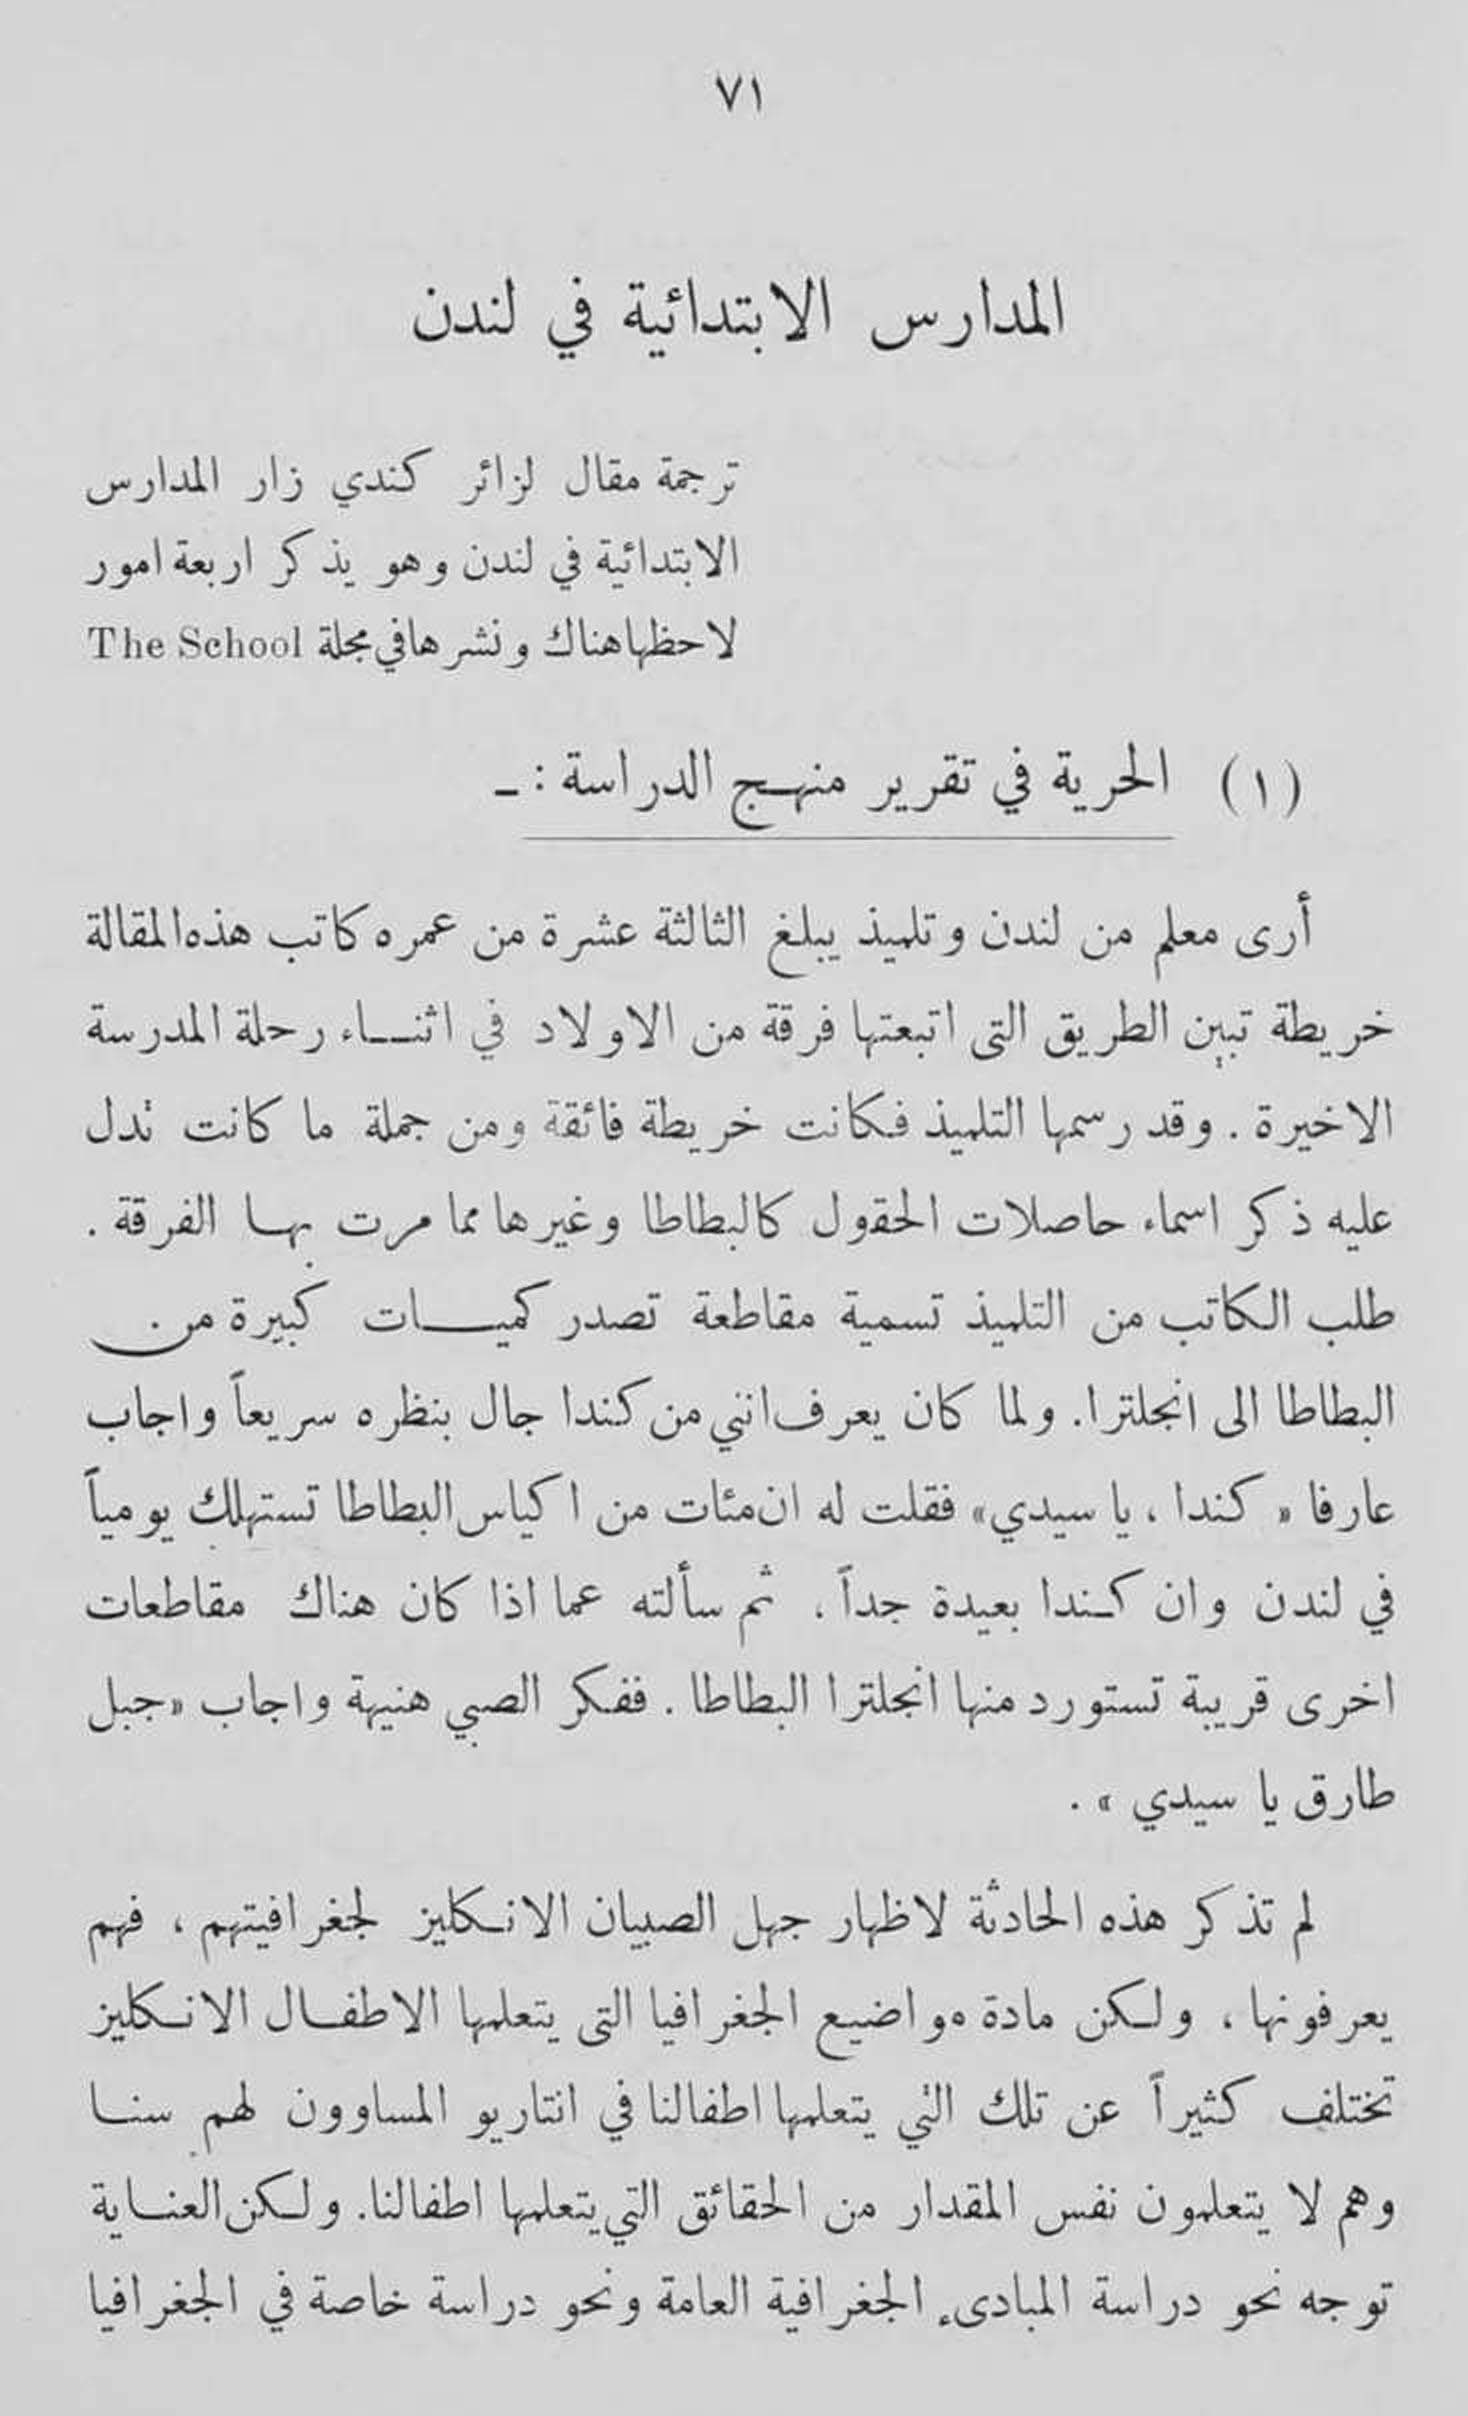 ٧١
المدارس الابتدائية في لندن
ترجمة مقال لزائر كندي زار المدارس
الابتدائية في لندن وهو يذكر اربعة امور
لاحظها هناك ونشرها في مجلة The School
(١) الحرية في تقرير منهج الدراسة : -
أرى معلم من لندن وتلميذ يبلغ الثالثة عشرة من عمره كاتب هذه المقالة
خريطة تبين الطريق التى اتبعتها فرقة من الاولاد في اثناء رحلة المدرسة
الاخيرة . وقد رسمها التلميذ فكانت خريطة فائقة ومن جملة ما كانت تدل
عليه ذكر اسماء حاصلات الحقول كالبطاطا وغيرها مما مرت بها الفرقة .
طلب الكاتب من التلميذ تسمية مقاطعة تصدر كميات كبيرة من
البطاطا الى انجلترا. ولما كان يعرف انني من كندا جال بنظره سريعاً واجاب
عارفا « كندا ، يا سيدي» فقلت له ان مئات من اكياس البطاطا تستهلك يومياً
في لندن وان كندا بعيدة جداً ، ثم سألته عما اذا كان هناك مقاطعات
اخرى قريبة تستورد منها انجلترا البطاطا . ففكر الصبي هنيهة واجاب «جبل
طارق يا سيدي » .
لم تذكر هذه الحادثة لاظهار جهل الصبيان الانكليز لجغرافيتهم ، فهم
يعرفونها ، ولكن مادة مواضيع الجغرافيا التى يتعلمها الاطفال الانكليز
تختلف كثيراً عن تلك التي يتعلمها اطفالنا في انتاريو المساوون لهم سنا
وهم لا يتعلمون نفس المقدار من الحقائق التي يتعلمها اطفالنا. ولكن العناية
توجه نحو دراسة المبادىء الجغرافية العامة ونحو دراسة خاصة في الجغرافيا